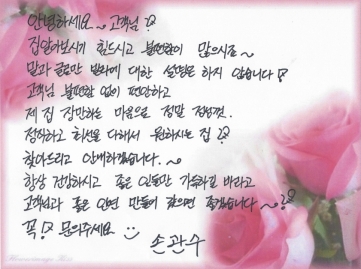 안녕하세요~ 고객님!
집알아보시기 힘드시고 불편함이 많으시죠~
말과 글로만 매물에 대한 설명은 하지 않습니다!
고객님 불편함 없이 편안하고
제 집 장만하는 마음으로 정말 정성껏.
정직하고 최선을 다해서 원하시는 집!
찾아드리고 안내하겠습니다.~
항상 건강하시고 좋은 일들만 가득하길 바라고
고객님과 좋은 인연 만들어 갔으면 좋겠습니다~!
꼭! 문의주세요 :)
손관수